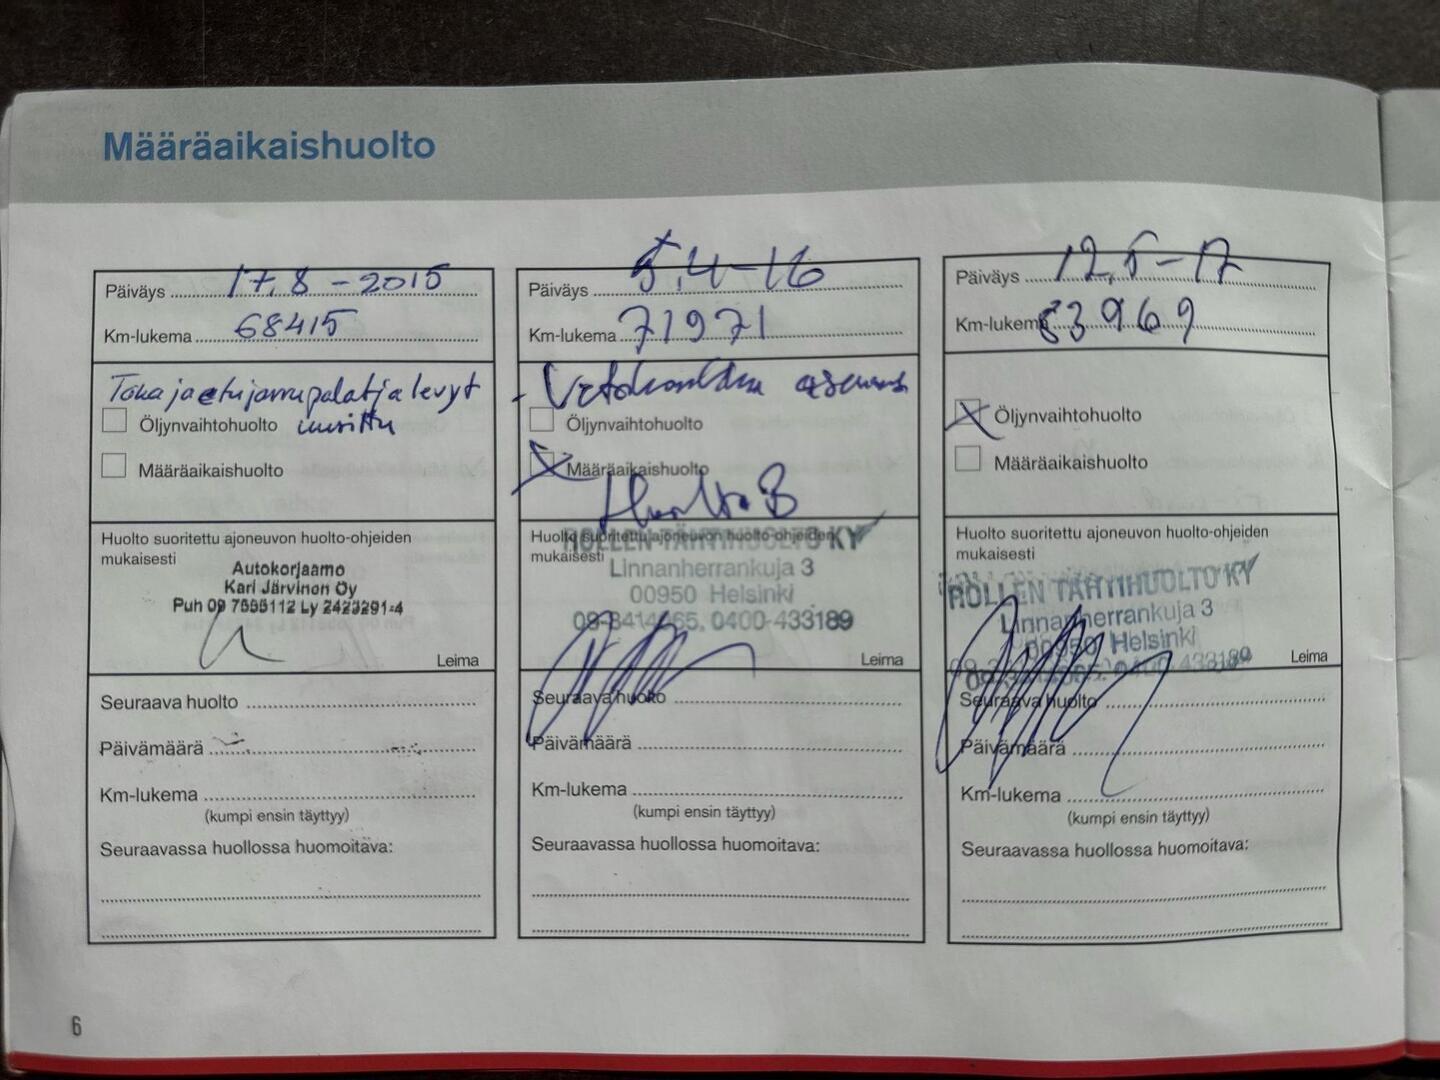 Määräaikaishuolto
Päiväys 17.8 - 2015
Km-lukema 68415
Taka ja etujarrupalat ja levyt
Öljynvaihtohuolto uusittu
Määräaikaishuolto
Huolto suoritettu ajoneuvon huolto-ohjeiden
mukaisesti
Autokorjaamo
Kari Järvinen Oy
Puh 09 7555112 Ly 2423291-4
Leima
Seuraava huolto
Päivämäärä
Km-lukema
(kumpi ensin täyttyy)
Seuraavassa huollossa huomoitava:
Päiväys 5.4-16
Km-lukema 71971
- Vetokoukku
Öljynvaihtohuolto
X Määräaikaishuolto
Huolto B
Huolto suoritettu ajoneuvon huolto-ohjeiden
mukaisesti
ROLLEN TÄHTIHUOLTO KY
Linnanherrankuja 3
00950 Helsinki
0400-433189
Leima
Seuraava huolto
Päivämäärä
Km-lukema
(kumpi ensin täyttyy)
Seuraavassa huollossa huomoitava:
Päiväys 12.5-17
Km-lukema 83969
X Öljynvaihtohuolto
Määräaikaishuolto
Huolto suoritettu ajoneuvon huolto-ohjeiden
mukaisesti
ROLLEN TÄHTIHUOLTO KY
Linnanherrankuja 3
00950 Helsinki
0400-433189
Leima
Seuraava huolto
Päivämäärä
Km-lukema
(kumpi ensin täyttyy)
Seuraavassa huollossa huomoitava:
6